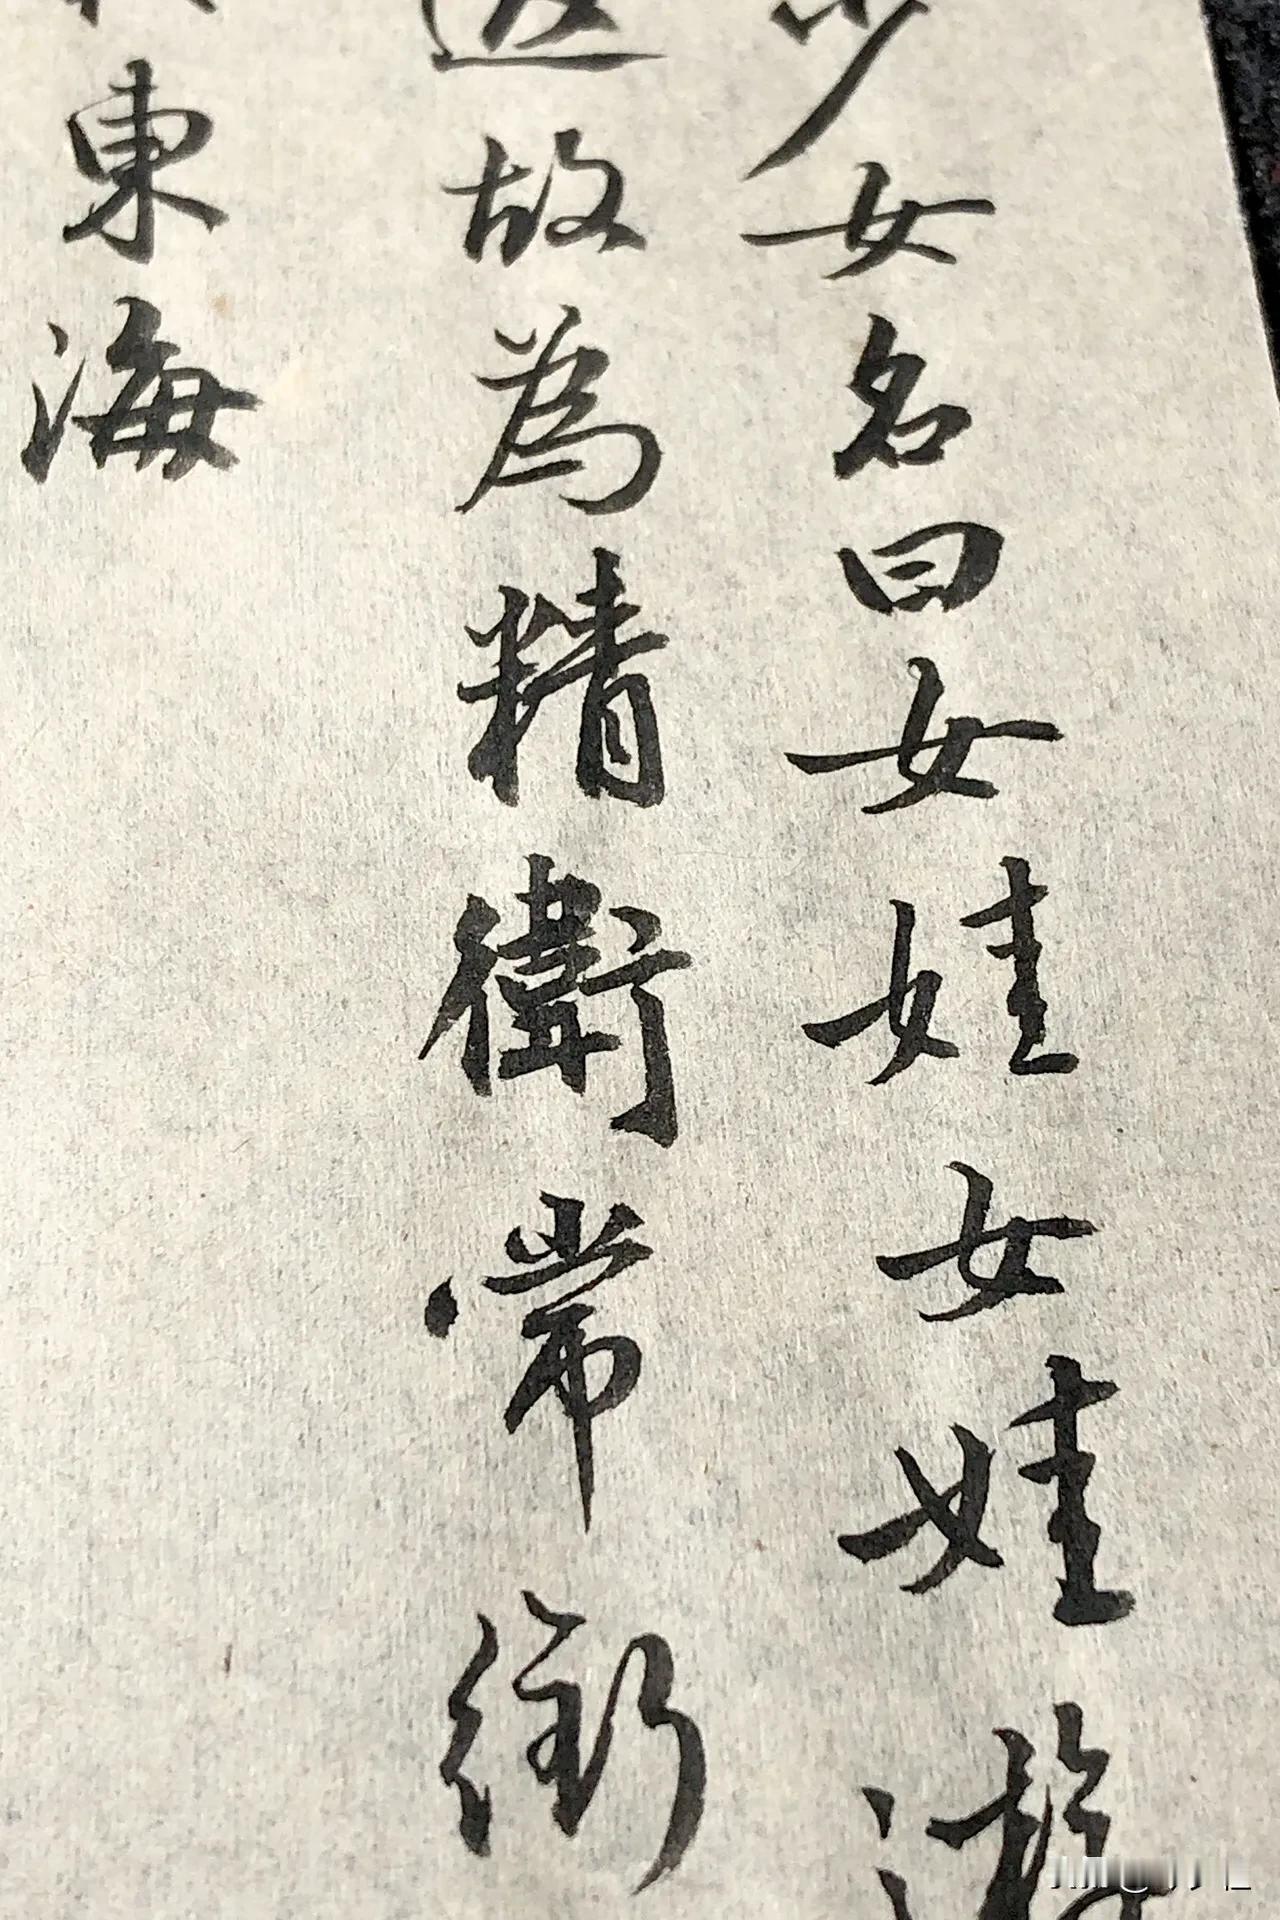 少女名曰女娃女娃游
返故為精衛常銜
東海